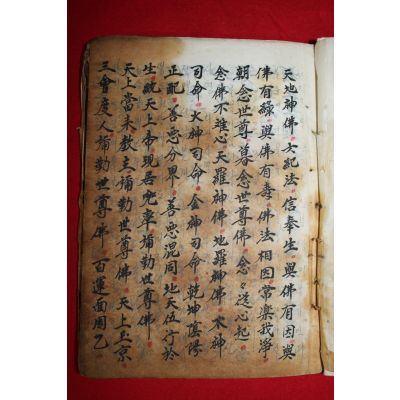 天地神佛七紀法信奉生與佛有因與
佛有緣與佛有毒佛法相因常樂我淨
朝念世尊暮念世尊佛念々從心起
念佛不離心天羅神佛地羅神佛木神
司命火神司命金神司命乾坤陰陽
正配善惡分界善惡混同地天伍行於
生統天上帝現居兜率彌勒世尊佛
天上當來教主彌勒世尊佛天上玉京
三會度人彌勒世尊佛百運面周乙